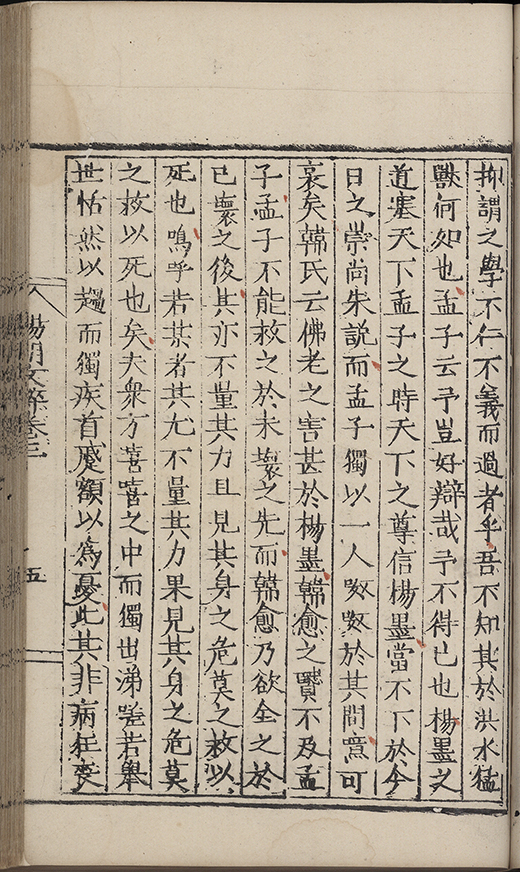 抑謂之學不仁不義而過者乎吾不知其於洪水猛
獸何如也孟子云予豈好辯哉予不得已也楊墨之
道塞天下孟子之時天下之尊信楊墨當不下於今
日之崇尚朱說而孟子獨以一人呶呶於其間噫可
哀矣韓氏云佛老之害甚於楊墨韓愈之賢不及孟
子孟子不能救之於未壞之先而韓愈乃欲全之於
已壞之後其亦不量其力且見其身之危莫之救以
死也嗚呼若某者其尤不量其力果見其身之危莫
之救以死也矣夫衆方嘻嘻之中而獨出涕嗟若舉
世恬然以趨而獨疾首蹙額以爲憂此其非病狂喪
陽明文粹卷三
五